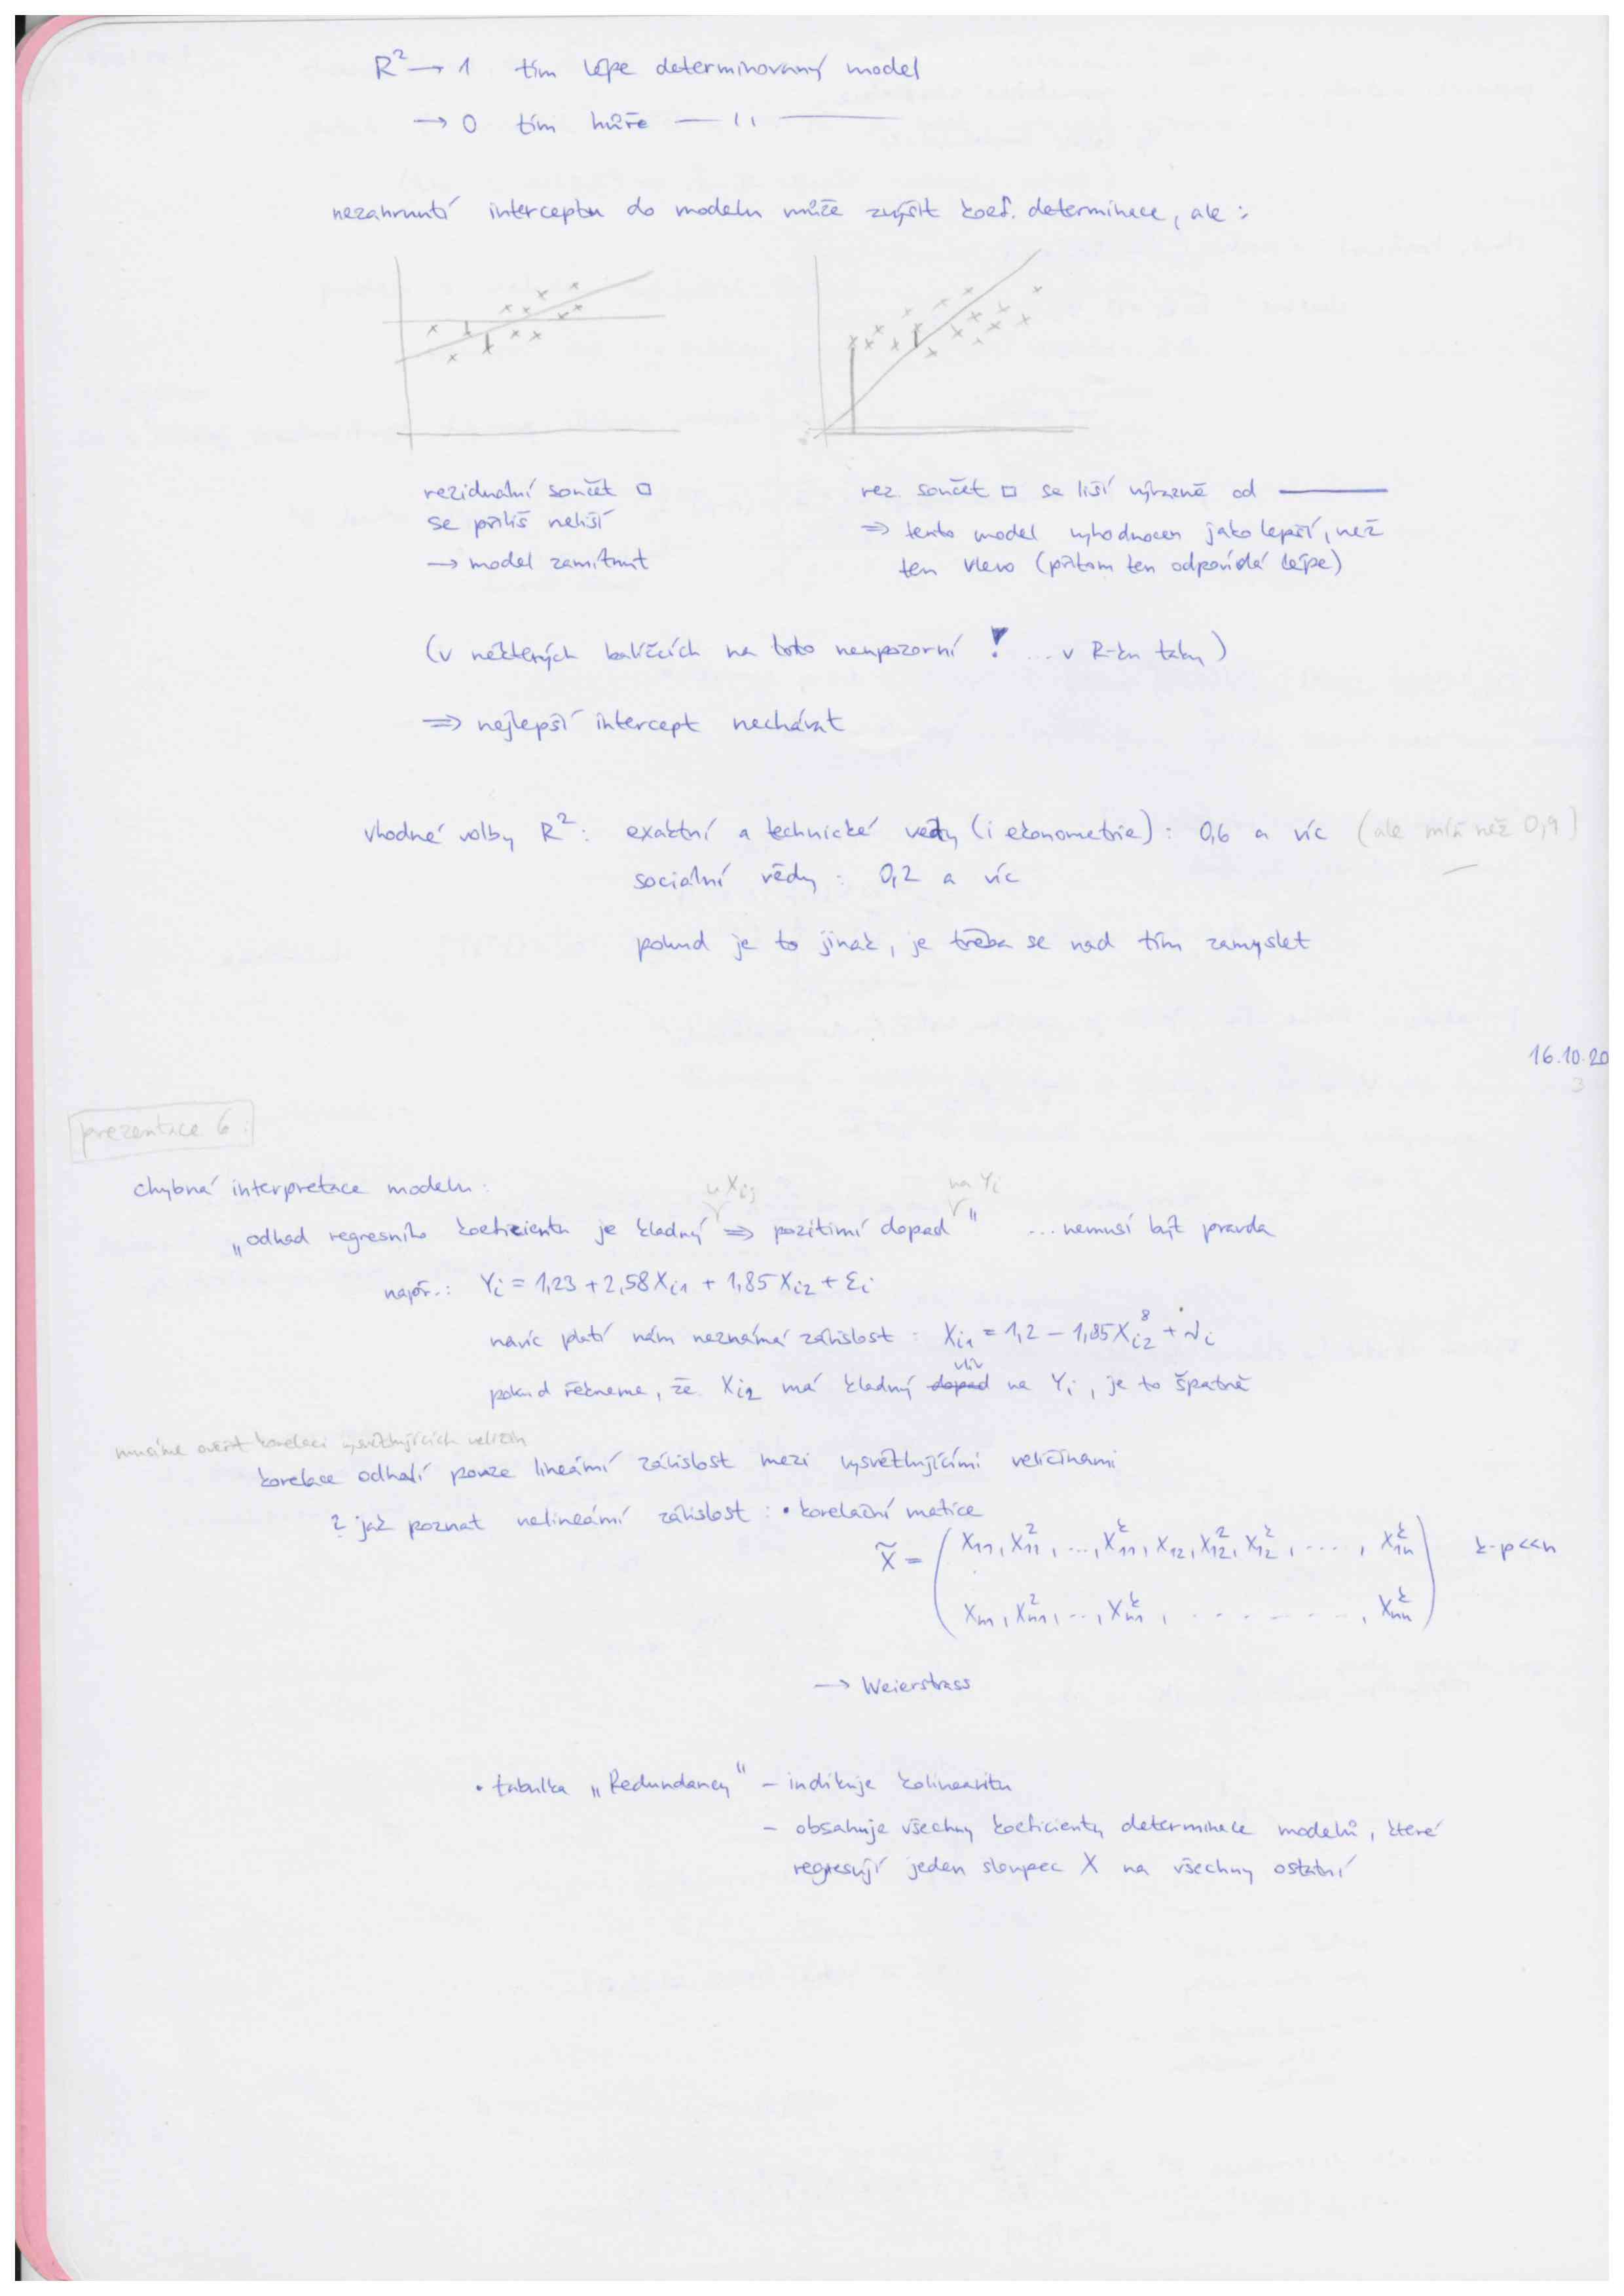 R² → 1 tím lépe determinovaný model
→ 0 tím hůře — 〃 —
nezahrnutí interceptu do modelu může zvýšit koef. determinace, ale :
reziduální součet □
se příliš neliší
→ model zamítnut
rez. součet □ se liší výrazně od ———
⇒ tento model vyhodnocen jako lepší, než
ten vlevo (přitom ten odpovídá lépe)
(v některých balíčcích na toto neupozorní ! ... v R-ku taky)
⇒ nejlepší intercept nechávat
vhodné volby R²: exaktní a technické vědy (i ekonometrie) : 0,6 a víc (ale míň než 0,9)
sociální vědy : 0,2 a víc
pokud je to jinak, je třeba se nad tím zamyslet
16.10.20
3
prezentace 6 :
chybná interpretace modelu :
u Xij
na Yi
„odhad regresního koeficientu je kladný ⇒ pozitivní dopad" ... nemusí být pravda
např.: Yi = 1,23 + 2,58 Xi1 + 1,85 Xi2 + εi
navíc platí nám neznámá závislost : Xi1 = 1,2 − 1,85 Xi2⁸ + νi
vliv
pokud řekneme, že Xi2 má kladný dopad na Yi, je to špatně
musíme ověřit korelaci vysvětlujících veličin
korelace odhalí pouze lineární závislost mezi vysvětlujícími veličinami
? jak poznat nelineární závislost : • korelační matice
X̃ = ( x11, x11², ..., x11ᵏ, x12, x12², x12ᵏ, ...., x1nᵏ ) k·p<<n
xn1, xn1², ..., xn1ᵏ, ........, xnnᵏ
→ Weierstrass
• tabulka „Redundancy" – indikuje kolinearitu
– obsahuje všechny koeficienty determinace modelů, které
regresují jeden sloupec X na všechny ostatní